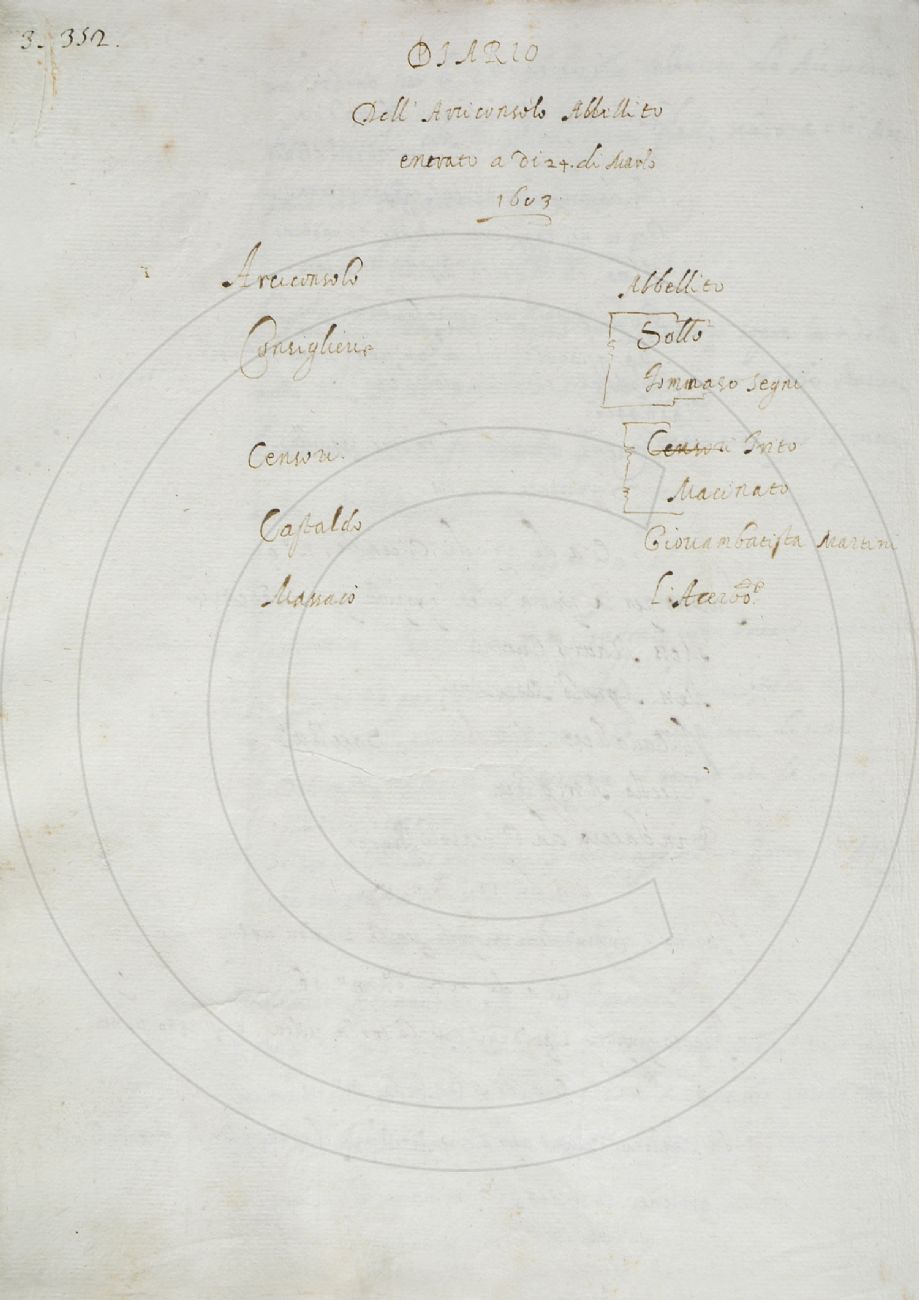 3. 352.
DIARIO
Dell' Arciconsolo Abbellito
entrato a di 24. di Marzo
1603
Arciconsolo Abbellito
Consiglieri Sollo
Tommaso Segni
Censori Censori Trito
Macinato
Castaldo Giovambatista Martini
Massaio L'Acerbo